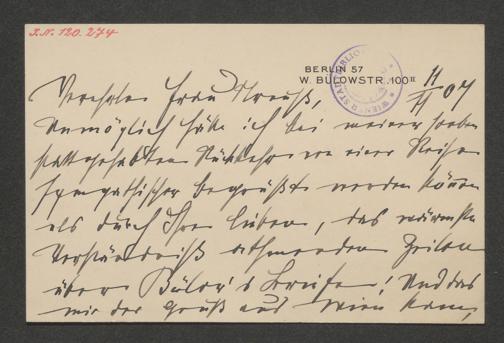 I.N. 120.274
BERLIN 57
W. BÜLOWSTR. 100 II
WIENER STADTBIBLIOTHEK
11/II 07
Verehrte Frau Strauß,
Unmöglich hätte ich bei meiner soeben
stattgehabten Rückkehr von einer Reise
sympathischer begrüßt werden können
als durch Ihre lieben, das wärmste
Verständniß athmenden Zeilen
über Bülow's Briefe! Und daß
mir der Gruß aus Wien kam,